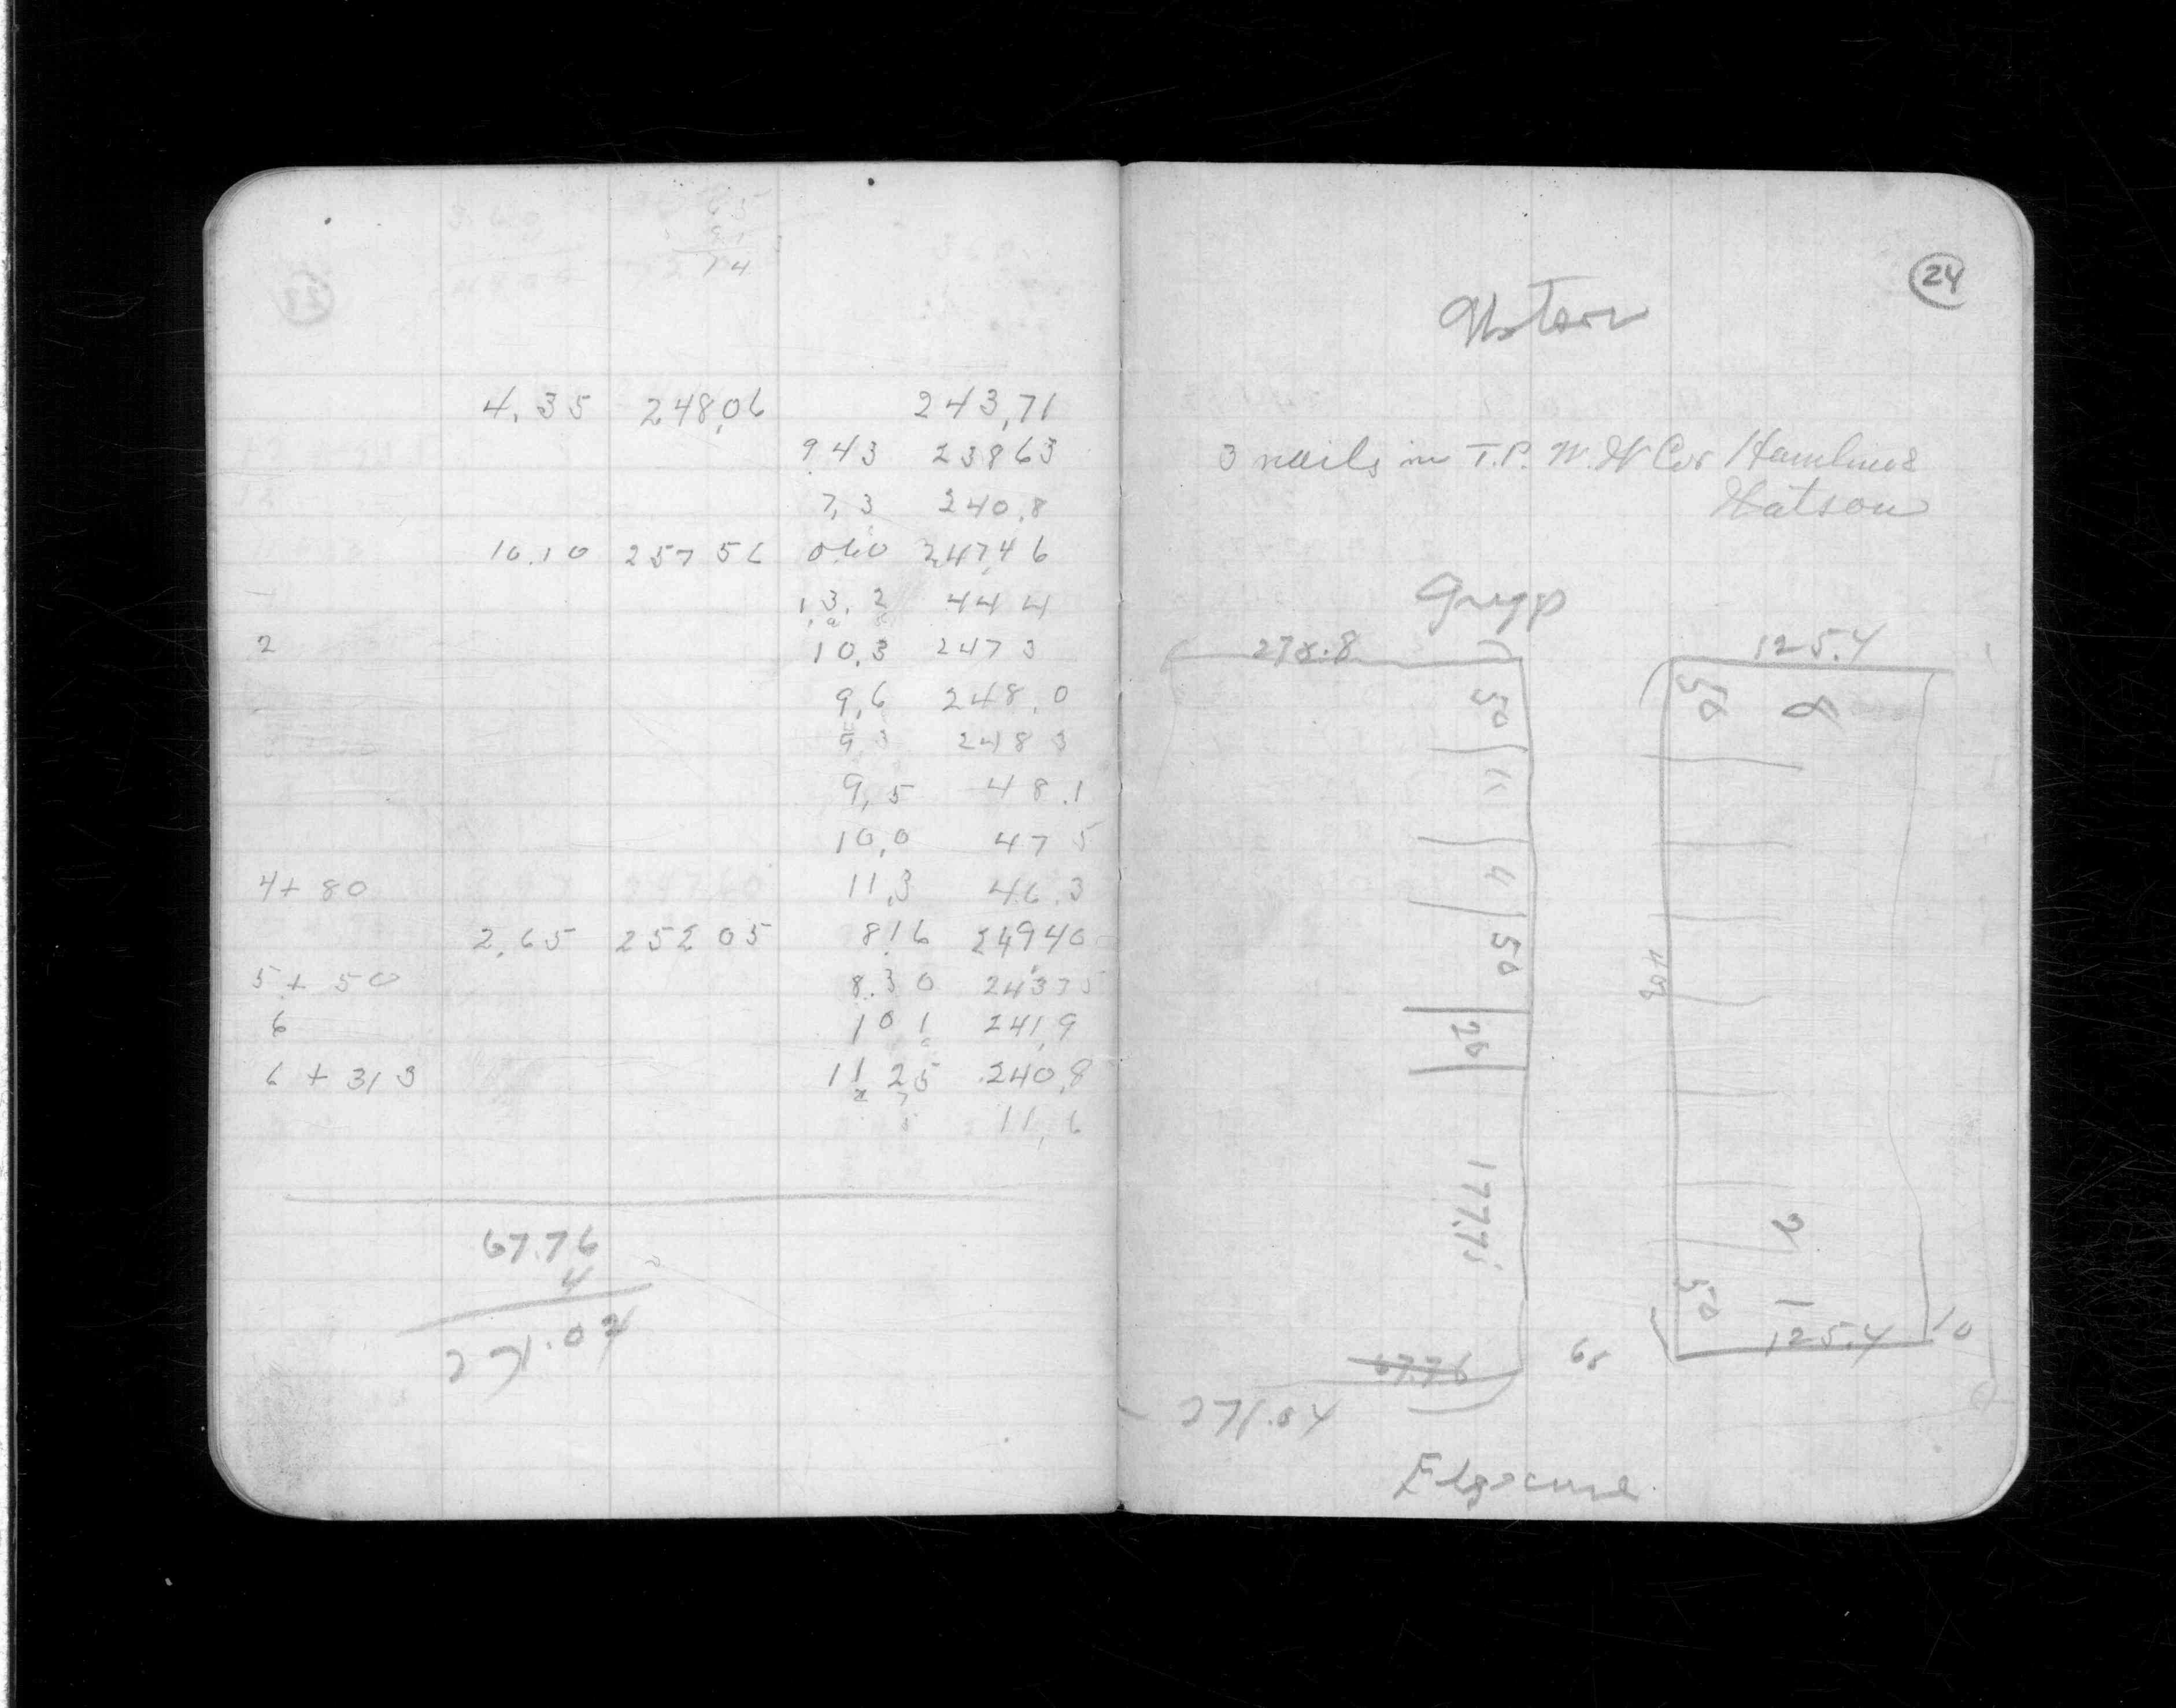 65
91
14
4.35 248.06 243.71
9.43 23863
7.3 240.8
10.10 257 56 0.60 247.46
13.2 44 4
2 10.3 247 3
9.6 248.0
9 3 248 3
9.5 48.1
10.0 47 5
4+ 80 11.3 46.3
2.65 252 05 8.16 24940
5+ 50 8.30 24375
6 10 1 241.9
6 + 31 3 11 25 240.8
11.6
67.76
4
271.04
24
Watson
3 nails in T.P. N.W Cor Hamline &
Watson
Grigg
278.8
50
"
4
50
20
177.71
67.76
271.04
125.4
50 8
408
2
50 1
125.4 10
66